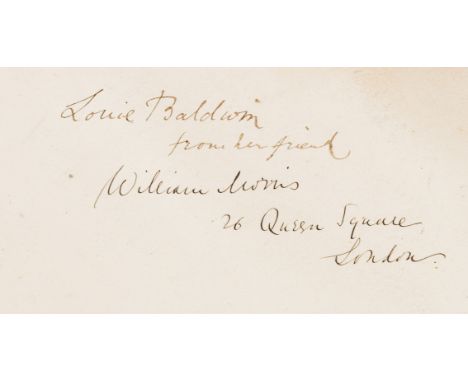 Louie Baldwin
from her friend
William Morris
26 Queen Square
London.